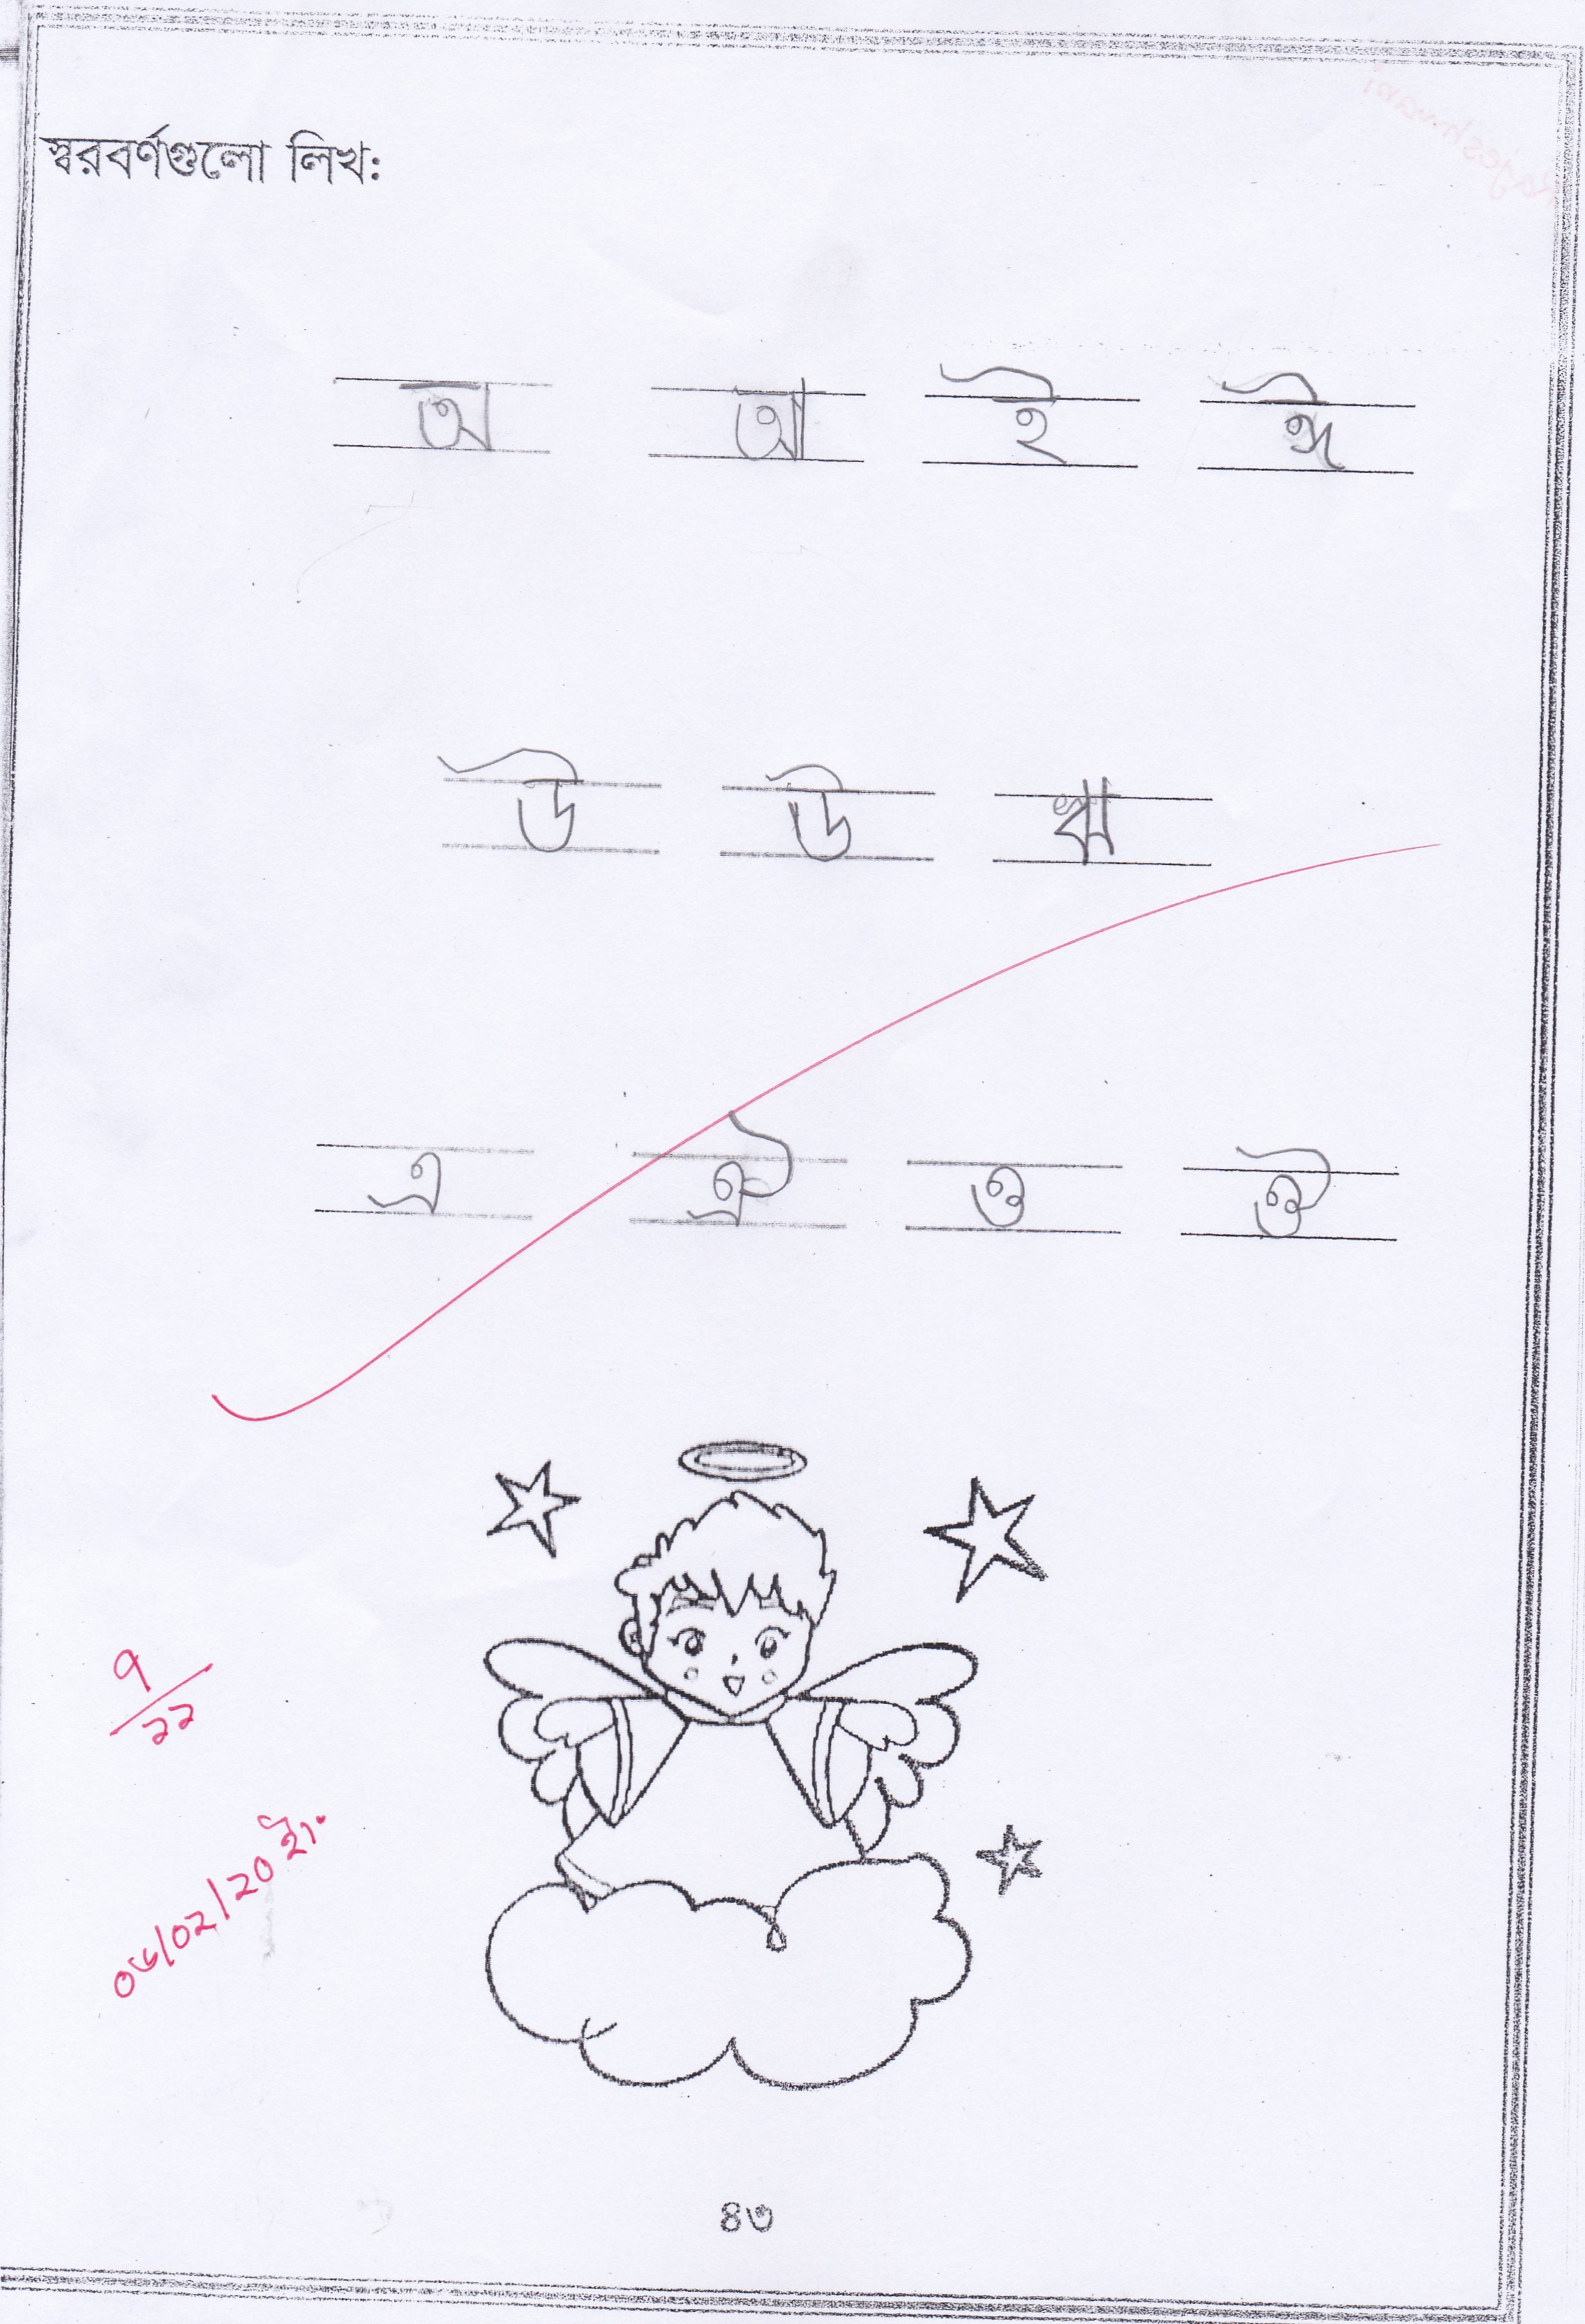 স্বরবর্ণগুলো লিখ:
অ আ ই ঈ
উ ঊ ঋ
এ ঐ ও ঔ
৭
২২
০৬/০২/২০ ইং
৪৩